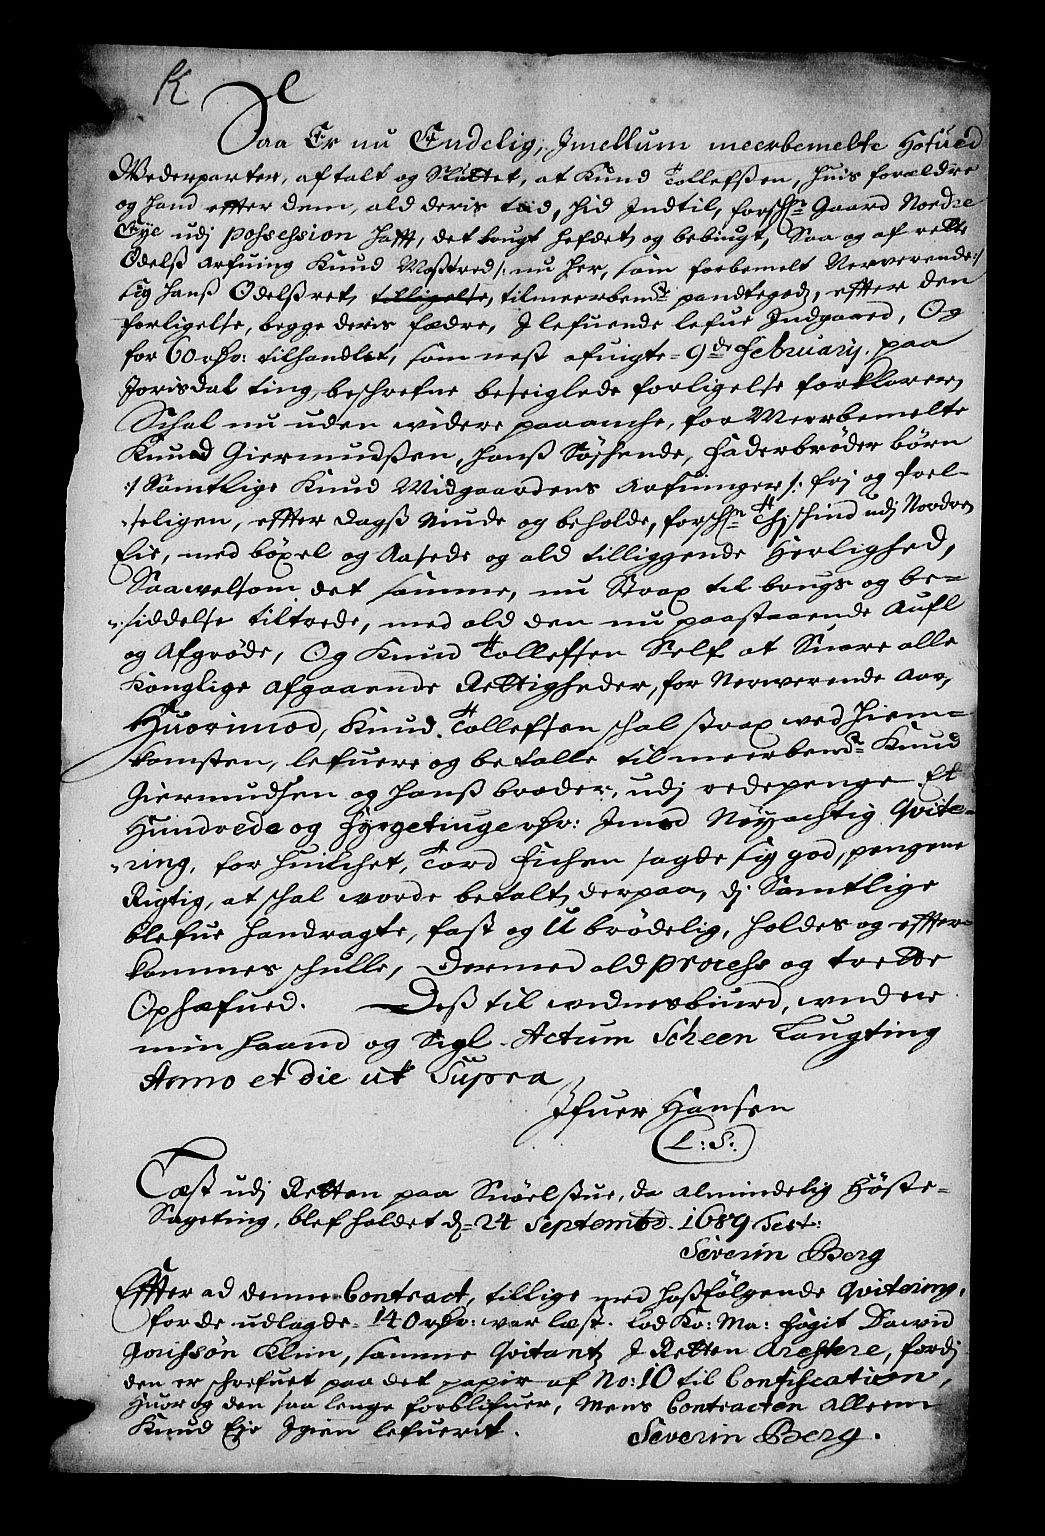 K
Saa Er nu Endelig, Jmellum meerbemelte Hofued
Wederparter, aftalt og Sluttet, at Knud Tollefsßen, huis forældre
og hand effter dem, ald deris tiid, hid Indtil, forschne Gaard Nordre
Eye udj possession hafft, det brugt hefdet og bebiugt, Saa og af rette
Odelß Arfuing Knud Moßtred /: nu her, som forbemelt Nerverende :/
sig hanß Odelßret, tilligelse, tilmeerbente pandtegods, effter den
forligelse, begge deris fædre, J lefuende lefue Indgaaed, Og
for 60 rdr: tilhandlet, som nest afuigte 9de February. paa
Jorisdal ting, beschrefne beseiglede forligelse forklarer,
Schal nu uden widere paaanche, for Meerbemelte
Knud Giermudsßen, hanß Søschende, faderbrøder børn
/: Samtlige Knud Midgaardens Arfuinger :/ frj og frel-
seligen, effter dagß niude og beholde, forschne Thisshind udj Nordre
Eie, med bøxel og Aasede og ald tilliggende Herlighed,
Saawelsom det samme, nu Strax til brugs og be-
siddelse tiltrede, med ald den nu paastaaende Aufl
og Afgrøde, Og Knud Tollefsen Self at Suare alle
Konglige Afgaaende Rettigheder, for Nerwerende Aar,
Huorimod, Knud Tollefsen schal strax wed hiem-
komsten, lefuere og betalle til meerbente Knud
Giermudsen og hanß brøder, udj redepenge Et
Hundrede og fyrgetiuge rdr: Jmod Nöyachtig Qvite-
ring, for huilchet, Tord fichsen sagde sig god, pengene
Rigtig, at schal worde betalt, derpaa, dj Samtlige
blefue handragte, fast og Ubrødelig, holdes og effter-
kommes schulle, Dermed ald process og trette
Ophæfued. Deß til widnesbiurd, under
min haand og Sigl. Actum Scheen Laugting
Anno et die ut Supra
Jfuer Hansen
L: S:
Læst udj Retten paa Snöelstue, da almindelig Høste-
Sageting, blef holdet d: 24 Septembr. 1689 Test:
Severin Berg
Effter ad denne Contract, tillige med hoßfölgende Qvitering,
for de udlagde 140 rdr: war læst. Lod Ko: Ma: fogit Dawid
Jörisßön Klim, samme Qvitantz J Retten Arestere, fordj
den er schrefuet paa det papir af No: 10 til Confiscation,
Huor og den saa lenge forblifuer, Mens Contracten alleene
Knud Eye Jgien lefuerit.
Severin Berg.